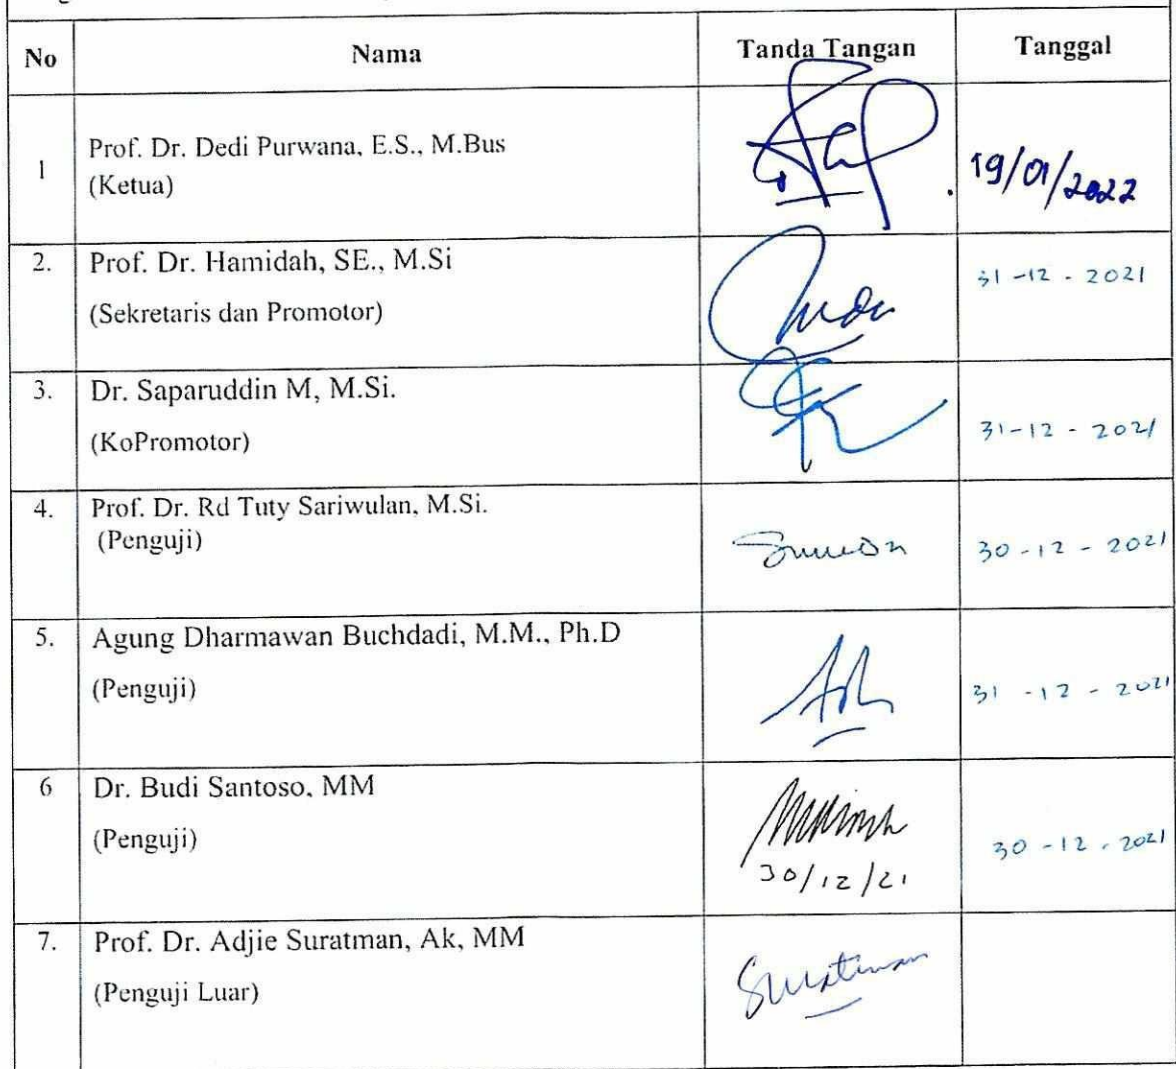 No Nama Tanda Tangan Tanggal
1 Prof. Dr. Dedi Purwana, E.S., M.Bus
(Ketua)
19/01/2022
2. Prof. Dr. Hamidah, SE., M.Si
(Sekretaris dan Promotor)
31-12-2021
3. Dr. Saparuddin M, M.Si.
(KoPromotor)
31-12-2021
4. Prof. Dr. Rd Tuty Sariwulan, M.Si.
(Penguji)
30-12-2021
5. Agung Dharmawan Buchdadi, M.M., Ph.D
(Penguji)
31-12-2021
6 Dr. Budi Santoso, MM
(Penguji)
30/12/21
30-12-2021
7. Prof. Dr. Adjie Suratman, Ak, MM
(Penguji Luar)
Suratman